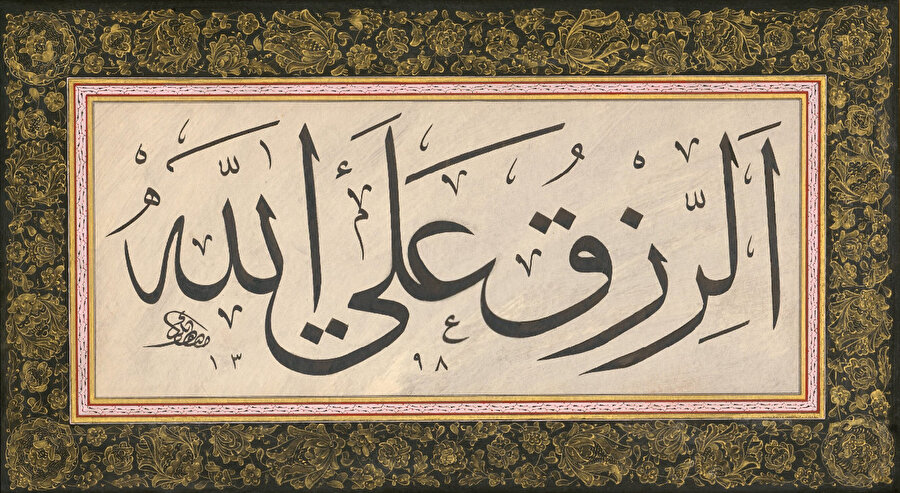 اَلرِّزْقُ عَلَى اللّٰهُ
١٣٩٨